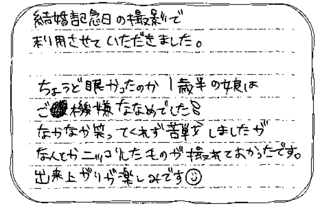 結婚記念日の撮影で
利用させていただきました。
ちょうど眠かったのか1歳半の娘は
ご機嫌ななめでした
なかなか笑ってくれず苦戦しましたが
なんとかニッコリしたものが撮えてよかったです。
出来上がりが楽しみです☺